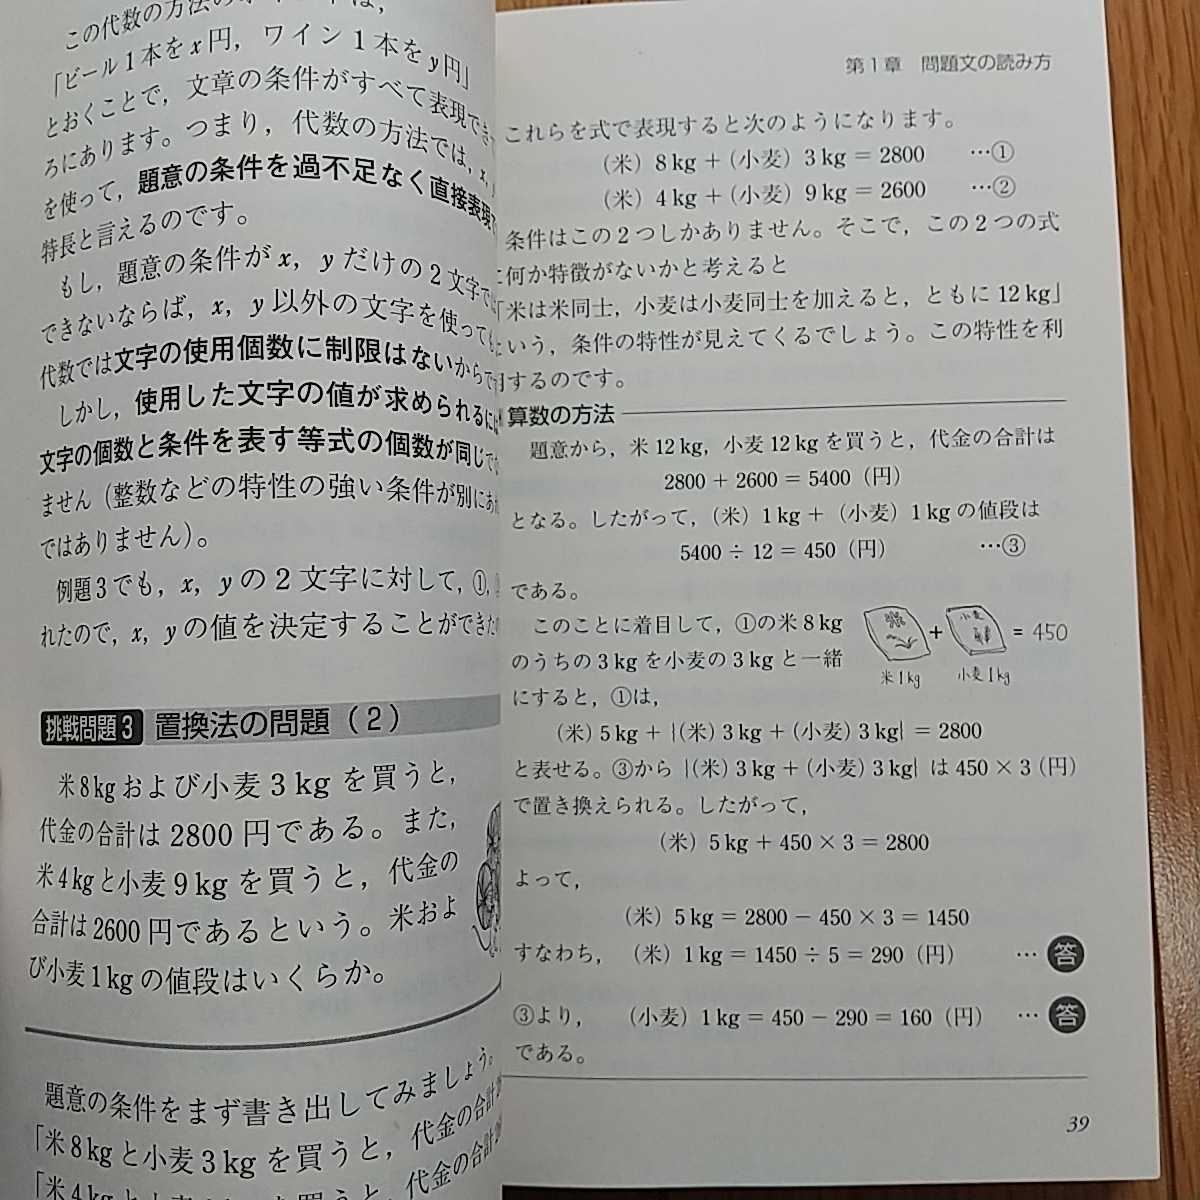 この代数の方法の
「ビール1本をx円，ワイン1本をy円」
とおくことで，文章の条件がすべて表現でき
ろにあります。つまり，代数の方法では，x，
を使って，題意の条件を過不足なく直接表現
特長と言えるのです。
もし，題意の条件がx，yだけの2文字では
できないならば，x，y以外の文字を使っても
代数では文字の使用個数に制限はないからで
しかし，使用した文字の値が求められるには
文字の個数と条件を表す等式の個数が同じで
ません（整数などの特性の強い条件が別にあれ
ではありません）。
例題3でも，x，yの2文字に対して，①，
れたので，x，yの値を決定することができた
挑戦問題3 置換法の問題（2）
米8kgおよび小麦3kgを買うと，
代金の合計は2800円である。また，
米4kgと小麦9kgを買うと，代金の
合計は2600円であるという。米およ
び小麦1kgの値段はいくらか。
題意の条件をまず書き出してみましょう。
「米8kgと小麦3kgを買うと，代金の合計
「米4kgと小麦9kgを買うと，代金の合計
第1章　問題文の読み方
これらを式で表現すると次のようになります。
（米）8kg＋（小麦）3kg＝2800　…①
（米）4kg＋（小麦）9kg＝2600　…②
条件はこの2つしかありません。そこで，この2つの式
に何か特徴がないかと考えると
「米は米同士，小麦は小麦同士を加えると，ともに12kg」
という，条件の特性が見えてくるでしょう。この特性を利
用するのです。
算数の方法
題意から，米12kg，小麦12kgを買うと，代金の合計は
2800＋2600＝5400（円）
となる。したがって，（米）1kg＋（小麦）1kgの値段は
5400÷12＝450（円）　…③
である。
このことに着目して，①の米8kg
のうちの3kgを小麦の3kgと一緒
にすると，①は，
小麦
＋ ＝450
米1kg 小麦1kg
（米）5kg＋{（米）3kg＋（小麦）3kg}＝2800
と表せる。③から{（米）3kg＋（小麦）3kg}は450×3（円）
で置き換えられる。したがって，
（米）5kg＋450×3＝2800
よって，
（米）5kg＝2800－450×3＝1450
すなわち，（米）1kg＝1450÷5＝290（円）　…答
③より，（小麦）1kg＝450－290＝160（円）　…答
である。
39